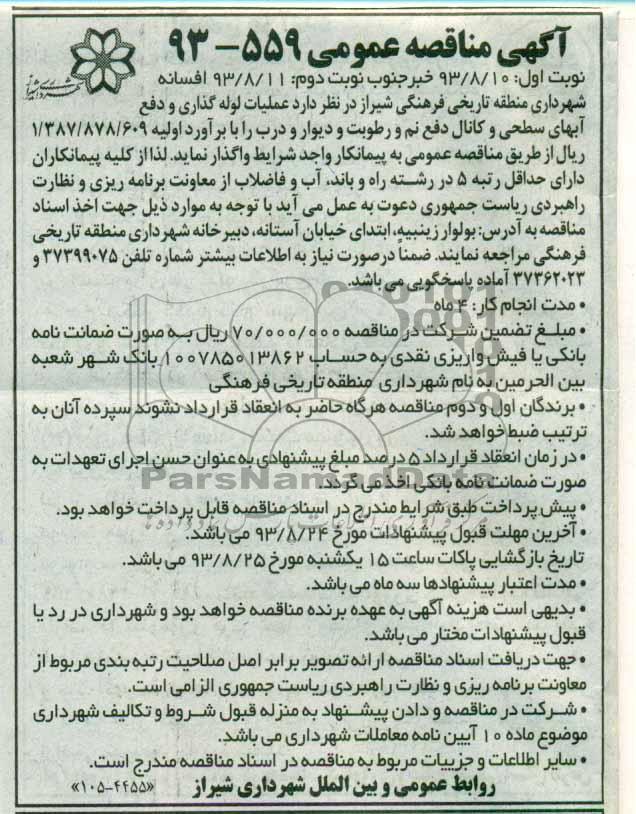 آگهی مناقصه عمومی ۵۵۹-۹۳
شهرداری شیراز
نوبت اول: ۹۳/۸/۱۰ خبرجنوب نوبت دوم: ۹۳/۸/۱۱ افسانه
شهرداری منطقه تاریخی فرهنگی شیراز در نظر دارد عملیات لوله گذاری و دفع
آبهای سطحی و کانال دفع نم و رطوبت و دیوار و درب را با برآورد اولیه ۱/۳۸۷/۸۷۸/۶۰۹
ریال از طریق مناقصه عمومی به پیمانکار واجد شرایط واگذار نماید. لذا از کلیه پیمانکاران
دارای حداقل رتبه ۵ در رشته راه و باند، آب و فاضلاب از معاونت برنامه ریزی و نظارت
راهبردی ریاست جمهوری دعوت به عمل می آید با توجه به موارد ذیل جهت اخذ اسناد
مناقصه به آدرس: بولوار زینبیه، ابتدای خیابان آستانه، دبیرخانه شهرداری منطقه تاریخی
فرهنگی مراجعه نمایند. ضمناً درصورت نیاز به اطلاعات بیشتر شماره تلفن ۳۷۳۹۹۰۷۵ و
۳۷۳۶۲۰۲۳ آماده پاسخگویی می باشد.
• مدت انجام کار: ۴ ماه
• مبلغ تضمین شرکت در مناقصه ۷۰/۰۰۰/۰۰۰ ریال به صورت ضمانت نامه
بانکی یا فیش واریزی نقدی به حساب ۱۰۰۷۸۵۰۱۳۸۶۲ بانک شهر شعبه
بین الحرمین به نام شهرداری منطقه تاریخی فرهنگی
• برندگان اول و دوم مناقصه هرگاه حاضر به انعقاد قرارداد نشوند سپرده آنان به
ترتیب ضبط خواهد شد.
• در زمان انعقاد قرارداد ۵ درصد مبلغ پیشنهادی به عنوان حسن اجرای تعهدات به
صورت ضمانت نامه بانکی اخذ می گردد.
ParsNamadData
• پیش پرداخت طبق شرایط مندرج در اسناد مناقصه قابل پرداخت خواهد بود.
• آخرین مهلت قبول پیشنهادات مورخ ۹۳/۸/۲۴ می باشد.
تاریخ بازگشایی پاکات ساعت ۱۵ یکشنبه مورخ ۹۳/۸/۲۵ می باشد.
• مدت اعتبار پیشنهادها سه ماه می باشد.
• بدیهی است هزینه آگهی به عهده برنده مناقصه خواهد بود و شهرداری در رد یا
قبول پیشنهادات مختار می باشد.
• جهت دریافت اسناد مناقصه ارائه تصویر برابر اصل صلاحیت رتبه بندی مربوط از
معاونت برنامه ریزی و نظارت راهبردی ریاست جمهوری الزامی است.
• شرکت در مناقصه و دادن پیشنهاد به منزله قبول شروط و تکالیف شهرداری
موضوع ماده ۱۰ آیین نامه معاملات شهرداری می باشد.
• سایر اطلاعات و جزییات مربوط به مناقصه در اسناد مناقصه مندرج است.
روابط عمومی و بین الملل شهرداری شیراز «۱۰۵-۴۴۵۵»